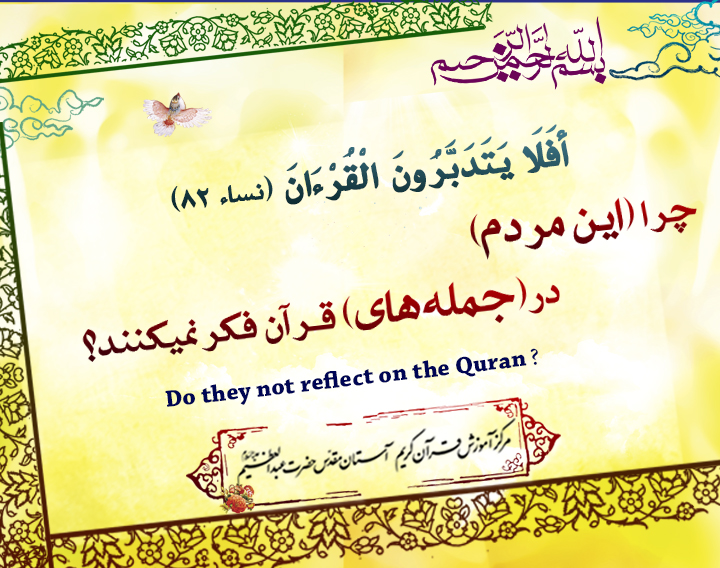 بسم الله الرحمن الرحیم
أَفَلَا يَتَدَبَّرُونَ الْقُرْءَانَ (نساء ۸۲)
چرا (این مردم)
در (جمله‌های) قرآن فکر نمیکنند؟
Do they not reflect on the Quran ?
مرکز آموزش قرآن کریم آستان مقدس حضرت عبدالعظیم